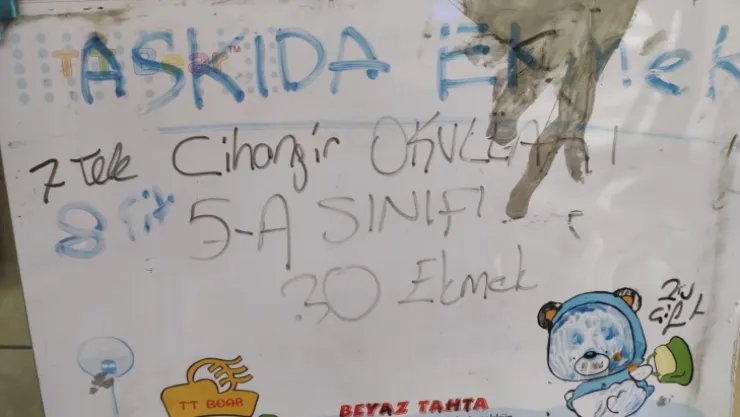 ASKIDA Ekmek
7 Tek Cihangir OKULLARI
8 Çift 5-A SINIFI
30 Ekmek
TT BEAR
BEYAZ TAHTA